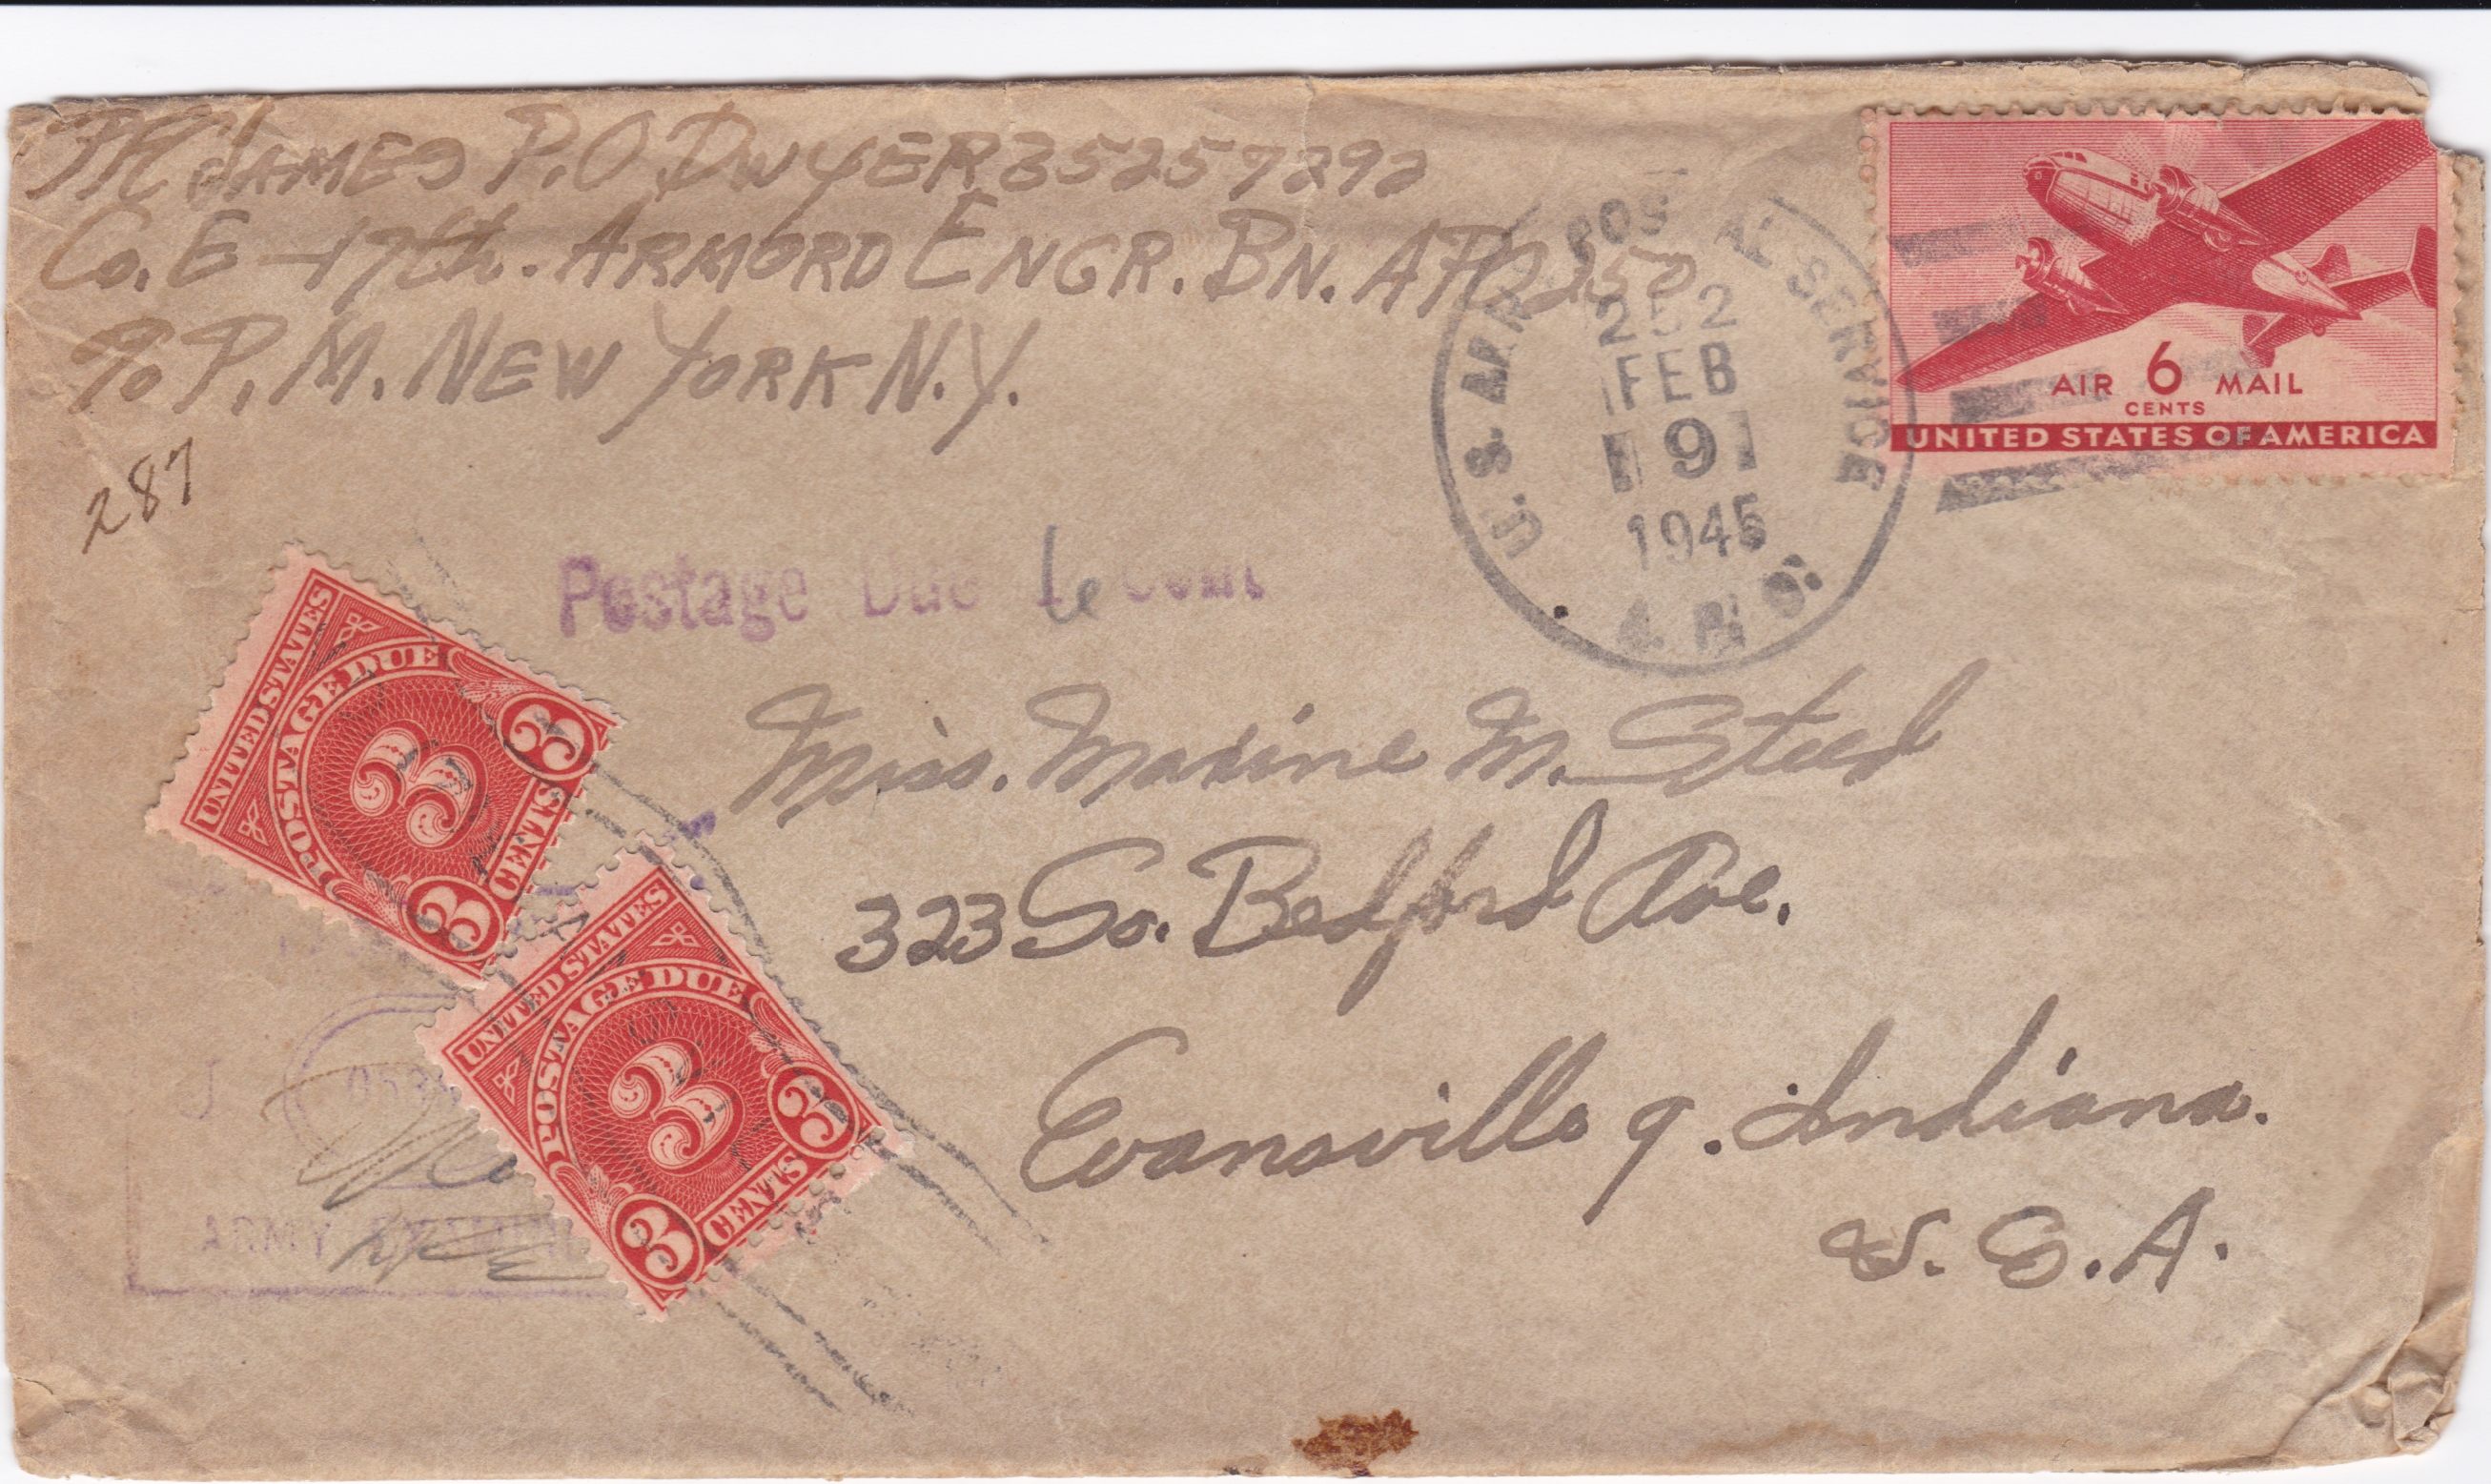 JAMES P. O DWYER 35257292
Co. E - 17th. ARMORD ENGR. BN. APO 250
c/o P. M. NEW YORK N.Y.
287
U.S. ARMY POSTAL SERVICE
252
FEB
9
1945
A.P.O.
AIR 6 MAIL
CENTS
UNITED STATES OF AMERICA
Postage Due 6 Cent
Miss. Maxine M. Steed
323 So. Bedford Ave.
Evansville 9. Indiana.
U. S. A.
UNITED STATES
POSTAGE DUE
3
3
3
CENTS
UNITED STATES
POSTAGE DUE
3
3
3
CENTS
ARMY